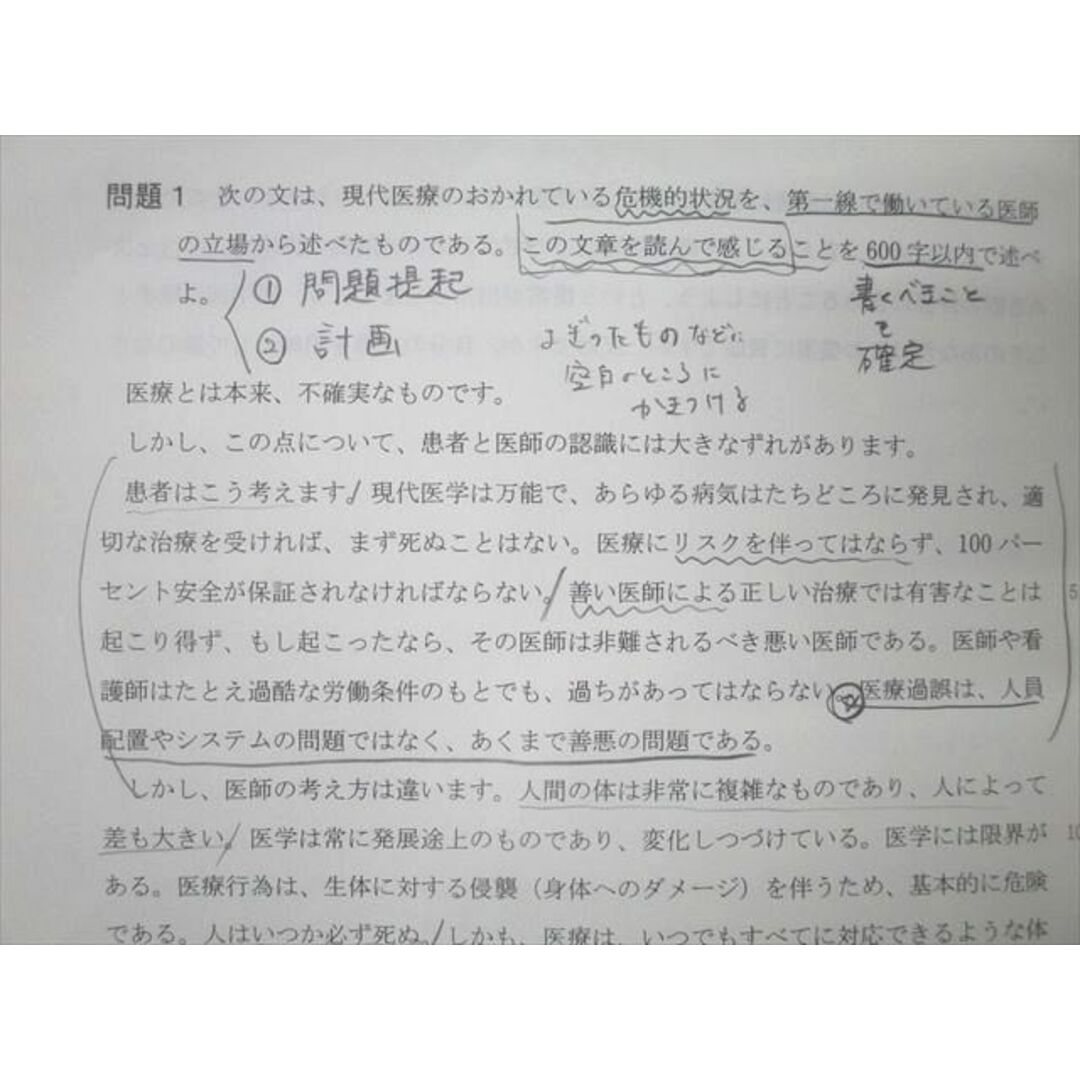 問題1 次の文は、現代医療のおかれている危機的状況を、第一線で働いている医師
の立場から述べたものである。この文章を読んで感じることを600字以内で述べ
よ。
① 問題提起
② 計画
よぎったものなどい
空白のところに
かきつける
書くべきこと
を
確定
医療とは本来、不確実なものです。
しかし、この点について、患者と医師の認識には大きなずれがあります。
患者はこう考えます。現代医学は万能で、あらゆる病気はたちどころに発見され、適
切な治療を受ければ、まず死ぬことはない。医療にリスクを伴ってはならず、100パー
セント安全が保証されなければならない。善い医師による正しい治療では有害なことは
5
起こり得ず、もし起こったなら、その医師は非難されるべき悪い医師である。医師や看
護師はたとえ過酷な労働条件のもとでも、過ちがあってはならない。医療過誤は、人員
配置やシステムの問題ではなく、あくまで善悪の問題である。
しかし、医師の考え方は違います。人間の体は非常に複雑なものであり、人によって
差も大きい。医学は常に発展途上のものであり、変化しつづけている。医学には限界が
10
ある。医療行為は、生体に対する侵襲（身体へのダメージ）を伴うため、基本的に危険
である。人はいつか必ず死ぬ。しかも、医療は、いつでもすべてに対応できるような体